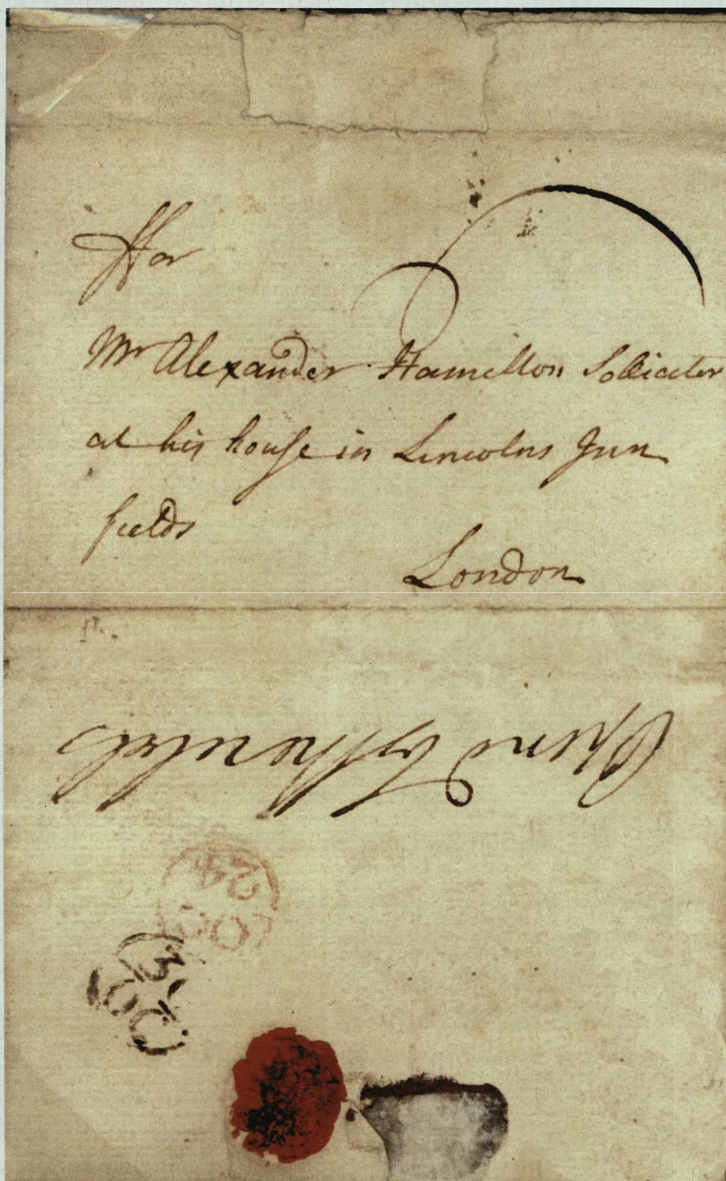 ffor
Mr Alexander Hamilton Solliciter
at his house in Lincolns Inn
fields
London
24
OC